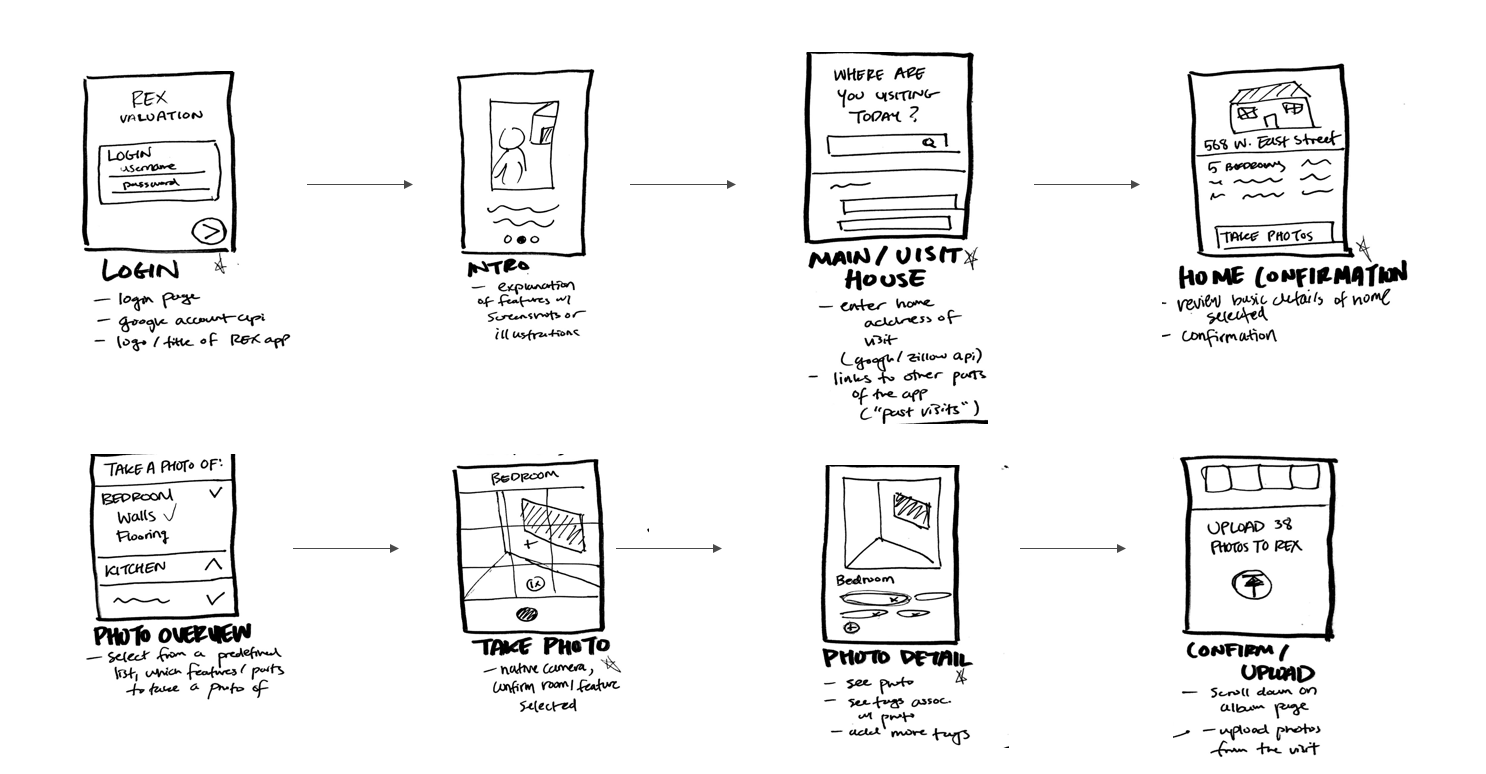 REX
VALUATION
LOGIN
username
password
LOGIN
— login page
— google account api
— logo / title of REX app
INTRO
— explanation
of features w/
screenshots or
illustrations
WHERE ARE
YOU VISITING
TODAY?
MAIN / VISIT
HOUSE
— enter home
address of
visit
(google / zillow api)
— links to other parts
of the app
("past visits")
568 W. East Street
5 BEDROOMS
TAKE PHOTOS
HOME CONFIRMATION
- review basic details of home
selected
- confirmation
TAKE A PHOTO OF:
BEDROOM
Walls
Flooring
KITCHEN
PHOTO OVERVIEW
— select from a predefined
list, which features / parts
to take a photo of
BEDROOM
1x
TAKE PHOTO
— native camera,
confirm room / feature
selected
Bedroom
PHOTO DETAIL
— see photo
— see tags assoc.
w/ photo
— add more tags
UPLOAD 38
PHOTOS TO REX
CONFIRM /
UPLOAD
— scroll down on
album page
— upload photos
from the visit